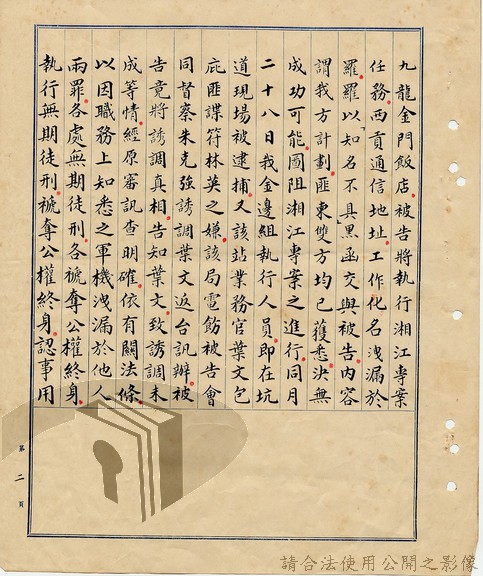 九龍金門飯店。被告將執行湘江專案
任務。西貢通信地址。工作化名洩漏於
羅。羅以「知名不具」黑函交與被告。內容
謂我方計劃。匪柬雙方均已獲悉。決無
成功可能。圖阻湘江專案之進行。同月
二十八日我金邊組執行人員。即在坑
道現場被逮捕。又該站業務官葉文包
庇匪諜符林英之嫌。該局電飭被告會
同督察朱克強誘調葉文返台訊辦。被
告竟將誘調真相。告知葉文。致誘調未
成等情。經原審訊查明確。依有關法條。
以因職務上知悉之軍機洩漏於他人
兩罪。各處無期徒刑。各褫奪公權終身。
執行無期徒刑。褫奪公權終身。認事用
第二頁
請合法使用公開之影像